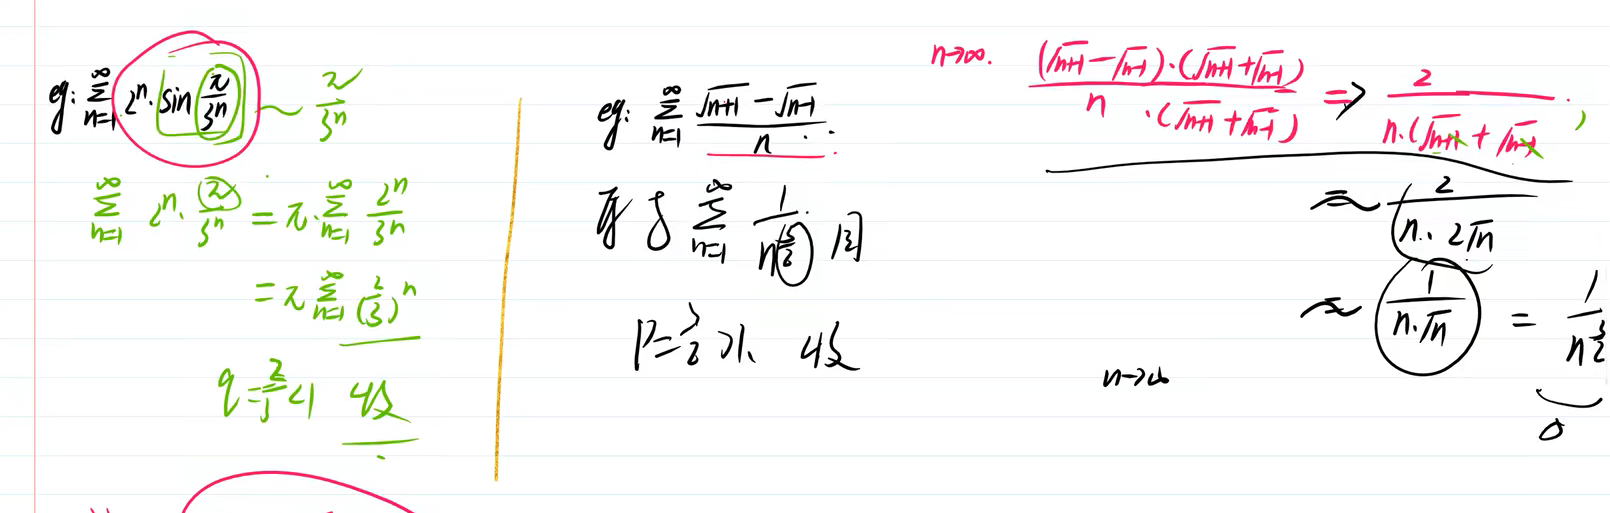 eg: ∑_{n=1}^{∞} 2^n · sin π/3^n ~ π/3^n
∑_{n=1}^{∞} 2^n · π/3^n = π · ∑_{n=1}^{∞} 2^n/3^n
= π ∑_{n=1}^{∞} (2/3)^n
q = 2/3 < 1 收
eg: ∑_{n=1}^{∞} (√(n+1) - √(n-1))/n
∑_{n=1}^{∞} 1/n^{3/2} 同
P = 3/2 > 1. 收
n→∞. (√(n+1) - √(n-1))·(√(n+1) + √(n-1)) / n·(√(n+1) + √(n-1)) => 2 / n·(√(n+1) + √(n-1))
≈ 2 / n·2√n
≈ 1 / n·√n = 1 / n^{3/2}
n→∞
0